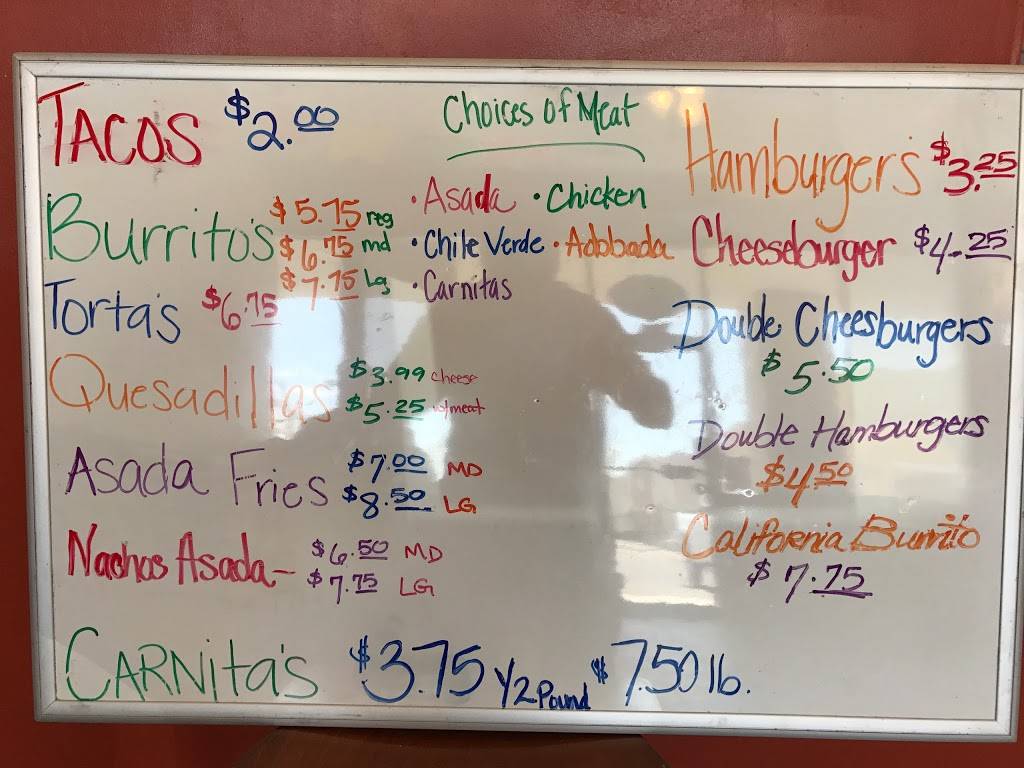 TACOS $2.00
Burrito's $5.75 reg
$6.75 md
$7.75 Lg
Torta's $6.75
Quesadillas $3.99 cheese
$5.25 w/meat
Asada Fries $7.00 MD
$8.50 LG
Nachos Asada- $6.50 MD
$7.75 LG
Choices of Meat
• Asada • Chicken
• Chile Verde • Adobada
• Carnitas
Hamburgers $3.25
Cheeseburger $4.25
Double Cheesburgers
$5.50
Double Hamburgers
$4.50
California Burrito
$7.75
CARNita's $3.75 1/2 Pound $7.50 lb.